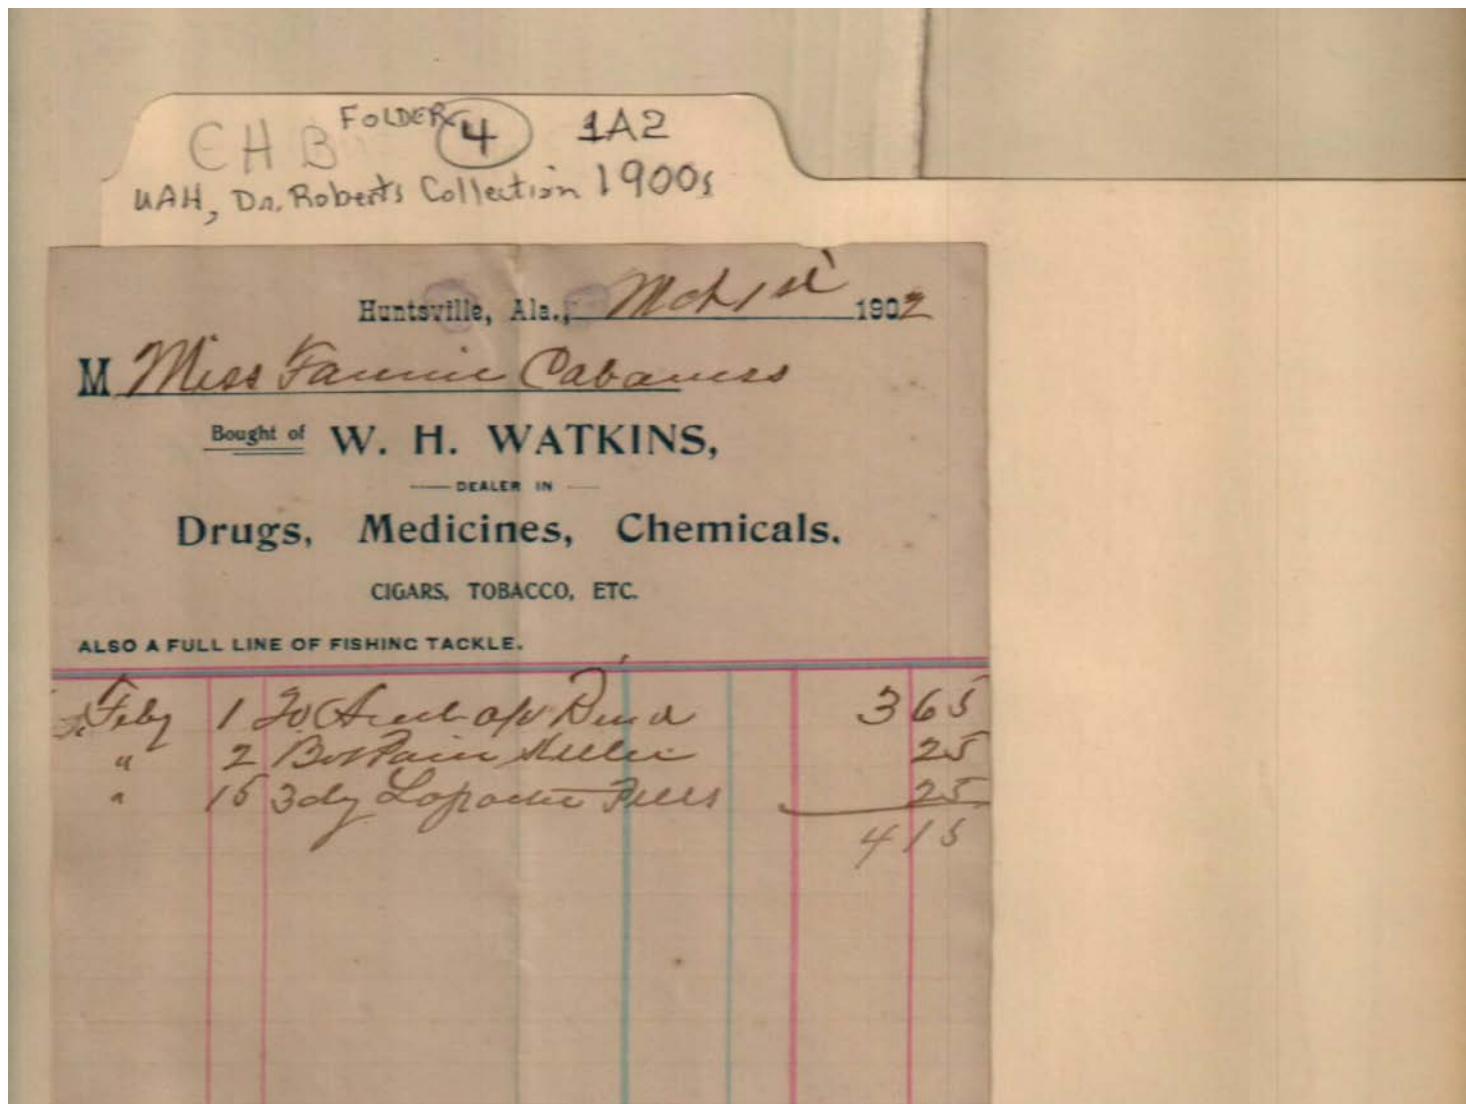 CHB FOLDER 4 1A2
UAH, Dr. Roberts Collection 1900s
Huntsville, Ala., Mch 1st 1902
M Miss Fannie Cabaniss
Bought of W. H. WATKINS,
DEALER IN
Drugs, Medicines, Chemicals,
CIGARS, TOBACCO, ETC.
ALSO A FULL LINE OF FISHING TACKLE.
Feby 1 To Acct 3 65
" 2 Bot Pain Killer 25
" 15 3 dz Pills 25
4 15